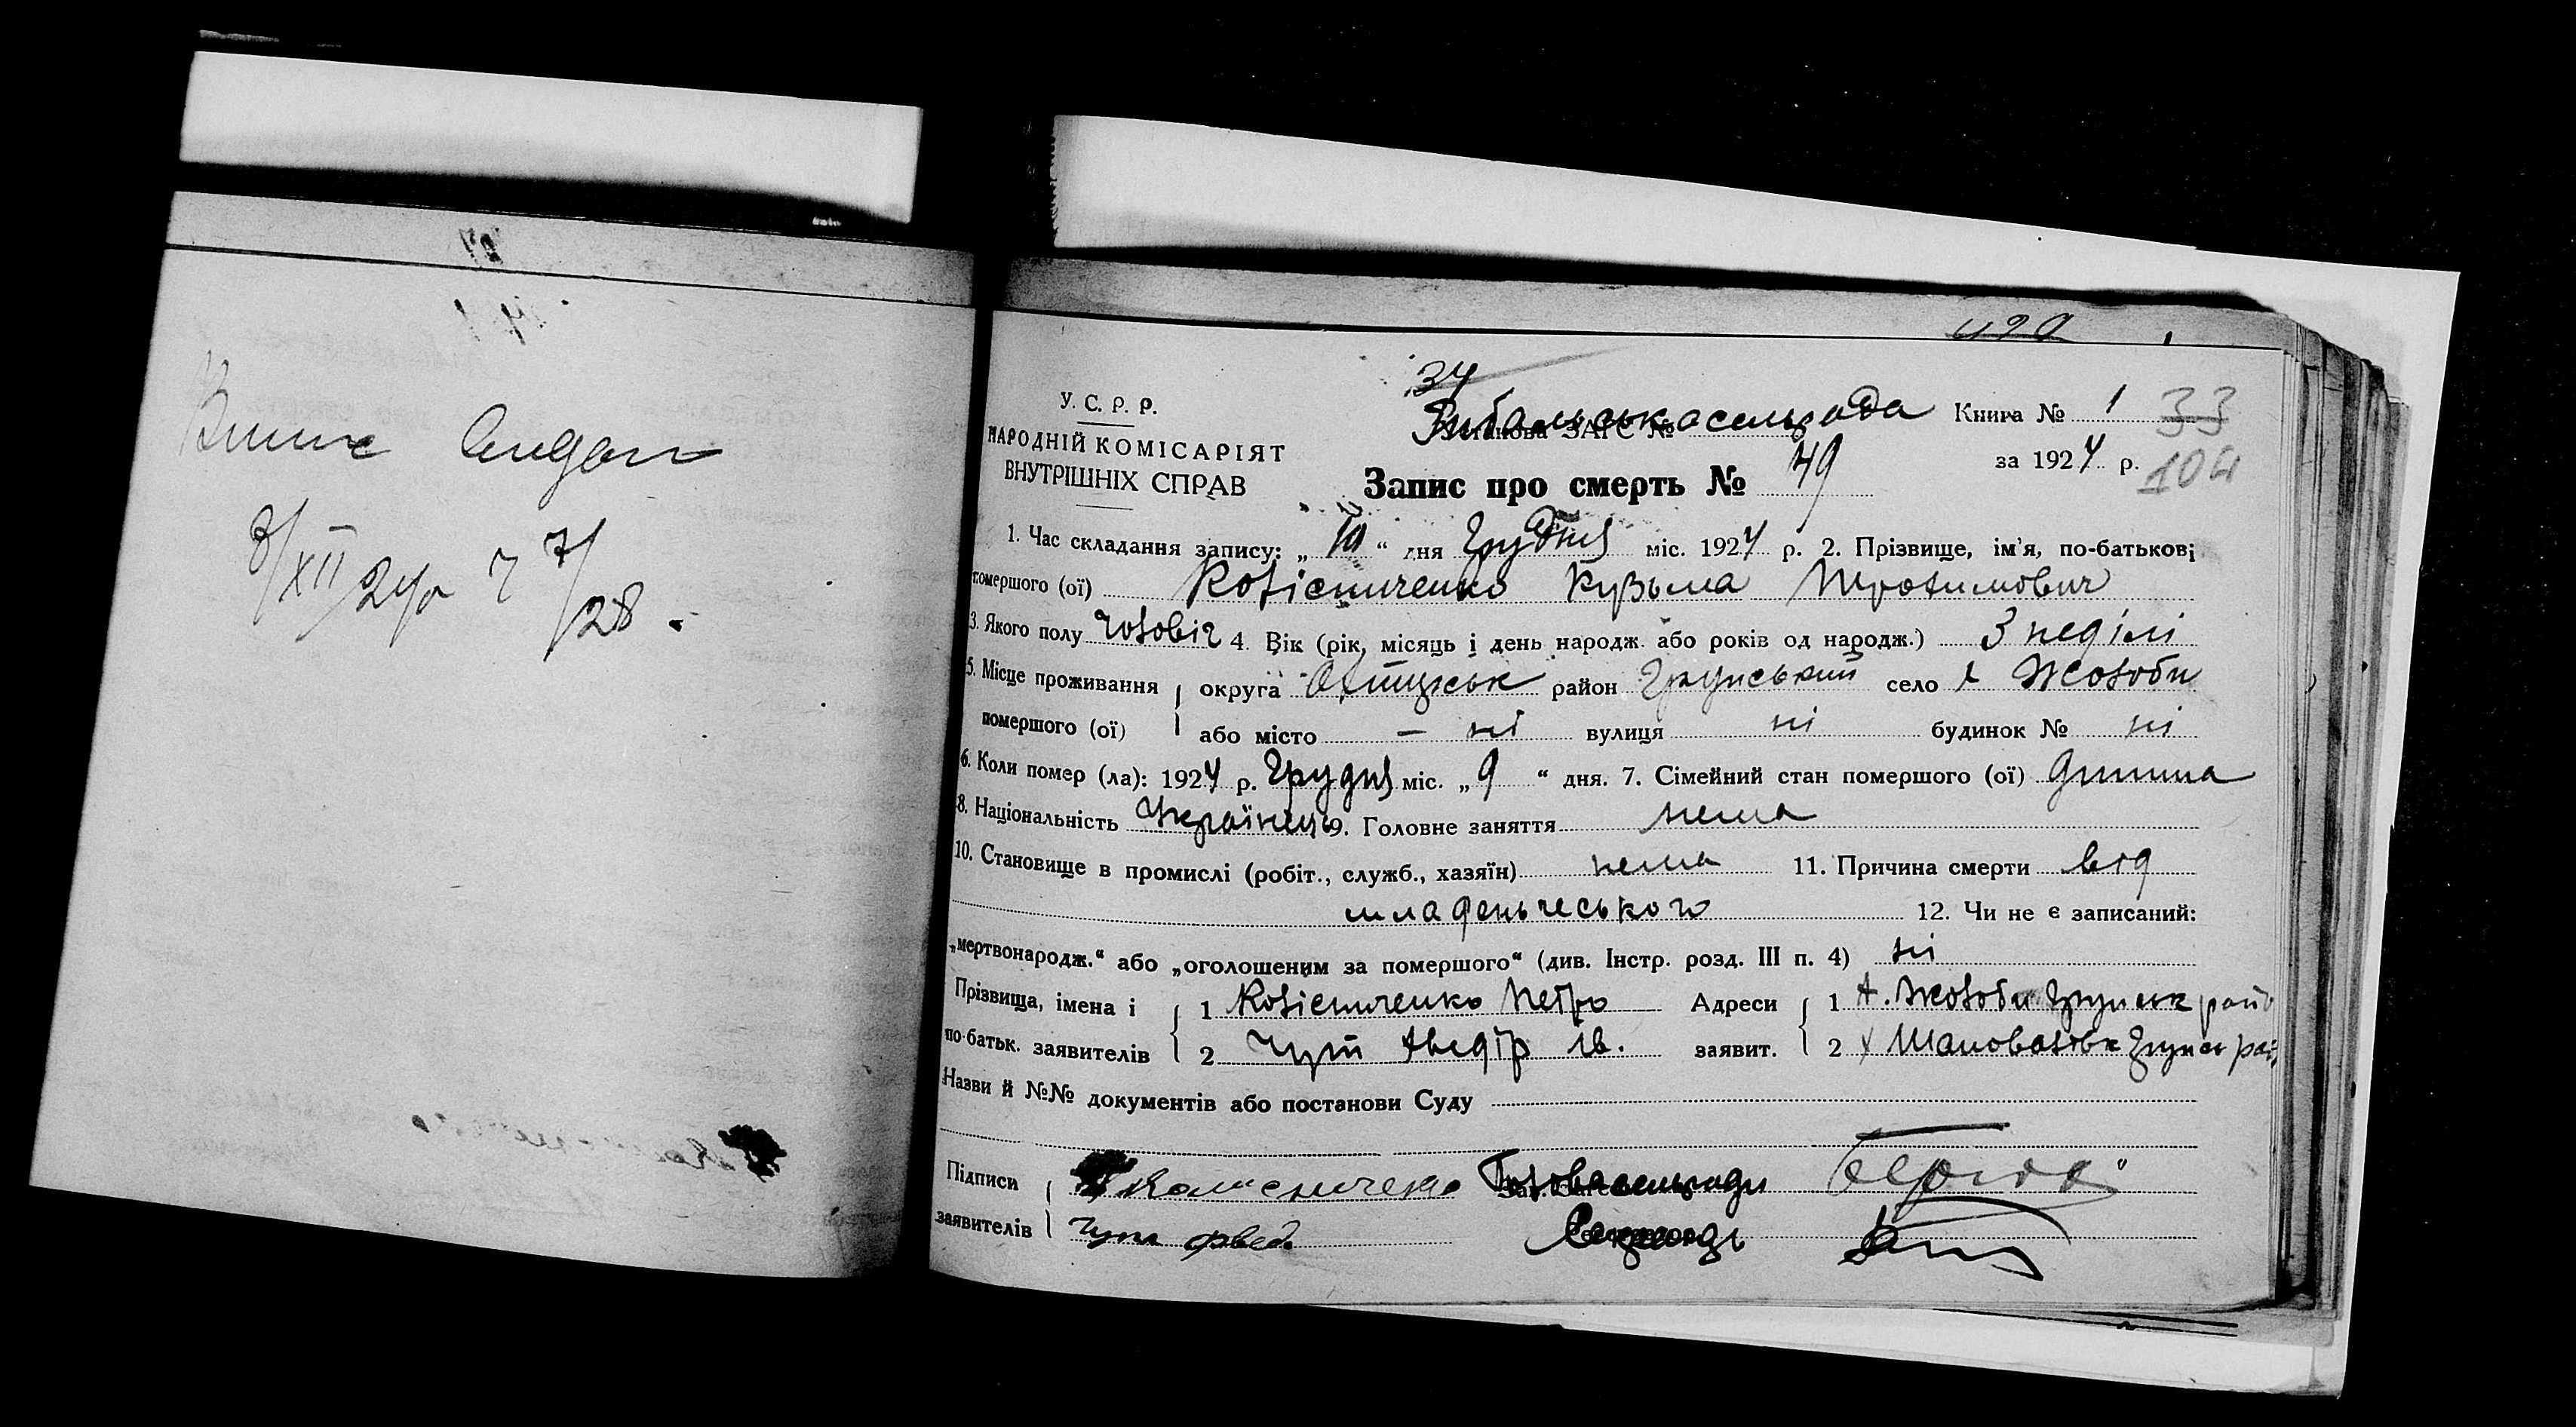 8/XII 24р ч 7/28.
34
Рибальська сельрада
Книга № 1 33
У. С. Р. Р.
НАРОДНІЙ КОМІСАРІЯТ
ВНУТРІШНІХ СПРАВ
за 1924 р. 104
Запис про смерть № 49
1. Час складання запису: „ 10 “ дня Грудня міс. 1924 р. 2. Прізвище, ім'я, по-батькові
помершого (ої) Колісниченко Кузьма Трохимович
3. Якого полу Чоловіч 4. Вік (рік, місяць і день народж. або років од народж.) 3 неділі
5. Місце проживання округа Охтирськ район Грунський село х Жолоби
помершого (ої) або місто — ні вулиця ні будинок № ні
6. Коли помер (ла): 1924 р. Грудня міс. „ 9 “ дня. 7. Сімейний стан помершого (ої) дитина
8. Національність Українець 9. Головне заняття нема
10. Становище в промислі (робіт., служб., хазяїн) нема 11. Причина смерти від
младеньчеського 12. Чи не є записаний:
„мертвонародж.“ або „оголошеним за помершого“ (див. Інстр. розд. III п. 4) ні
Прізвища, імена і 1 Колісниченко Петро Адреси 1 х. Жолоби Грунськ райо
по-батьк. заявителів 2 Чуп Хведір Ів. заявит. 2 х Шаповалівк Грунсь рай
Назви й №№ документів або постанови Суду
Підписи Колисниченко Голова сельради
заявителів Чуп Фвед. Секретарь